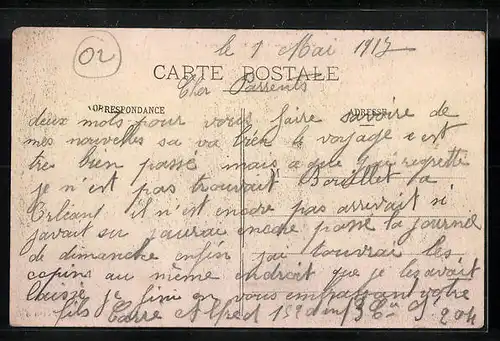 02
le 1 Mai 1917
CARTE POSTALE
Cher Parrents
CORRESPONDANCE
ADRESSE
deux mots pour vous faire savoire de
mes nouvelles sa va bien le voyage c est
tres bien passé mais a que j'ai regretté
je n est pas trouvait Bouillet a
Orléant il n'est encore pas arrivait si
javait su jaurai encore passé la journé
de dimanche enfin jai touvrai les
copins au même endroit que je lezavait
laissé je fini en vous embrassant votre
fils Carre Alfred 13e
204